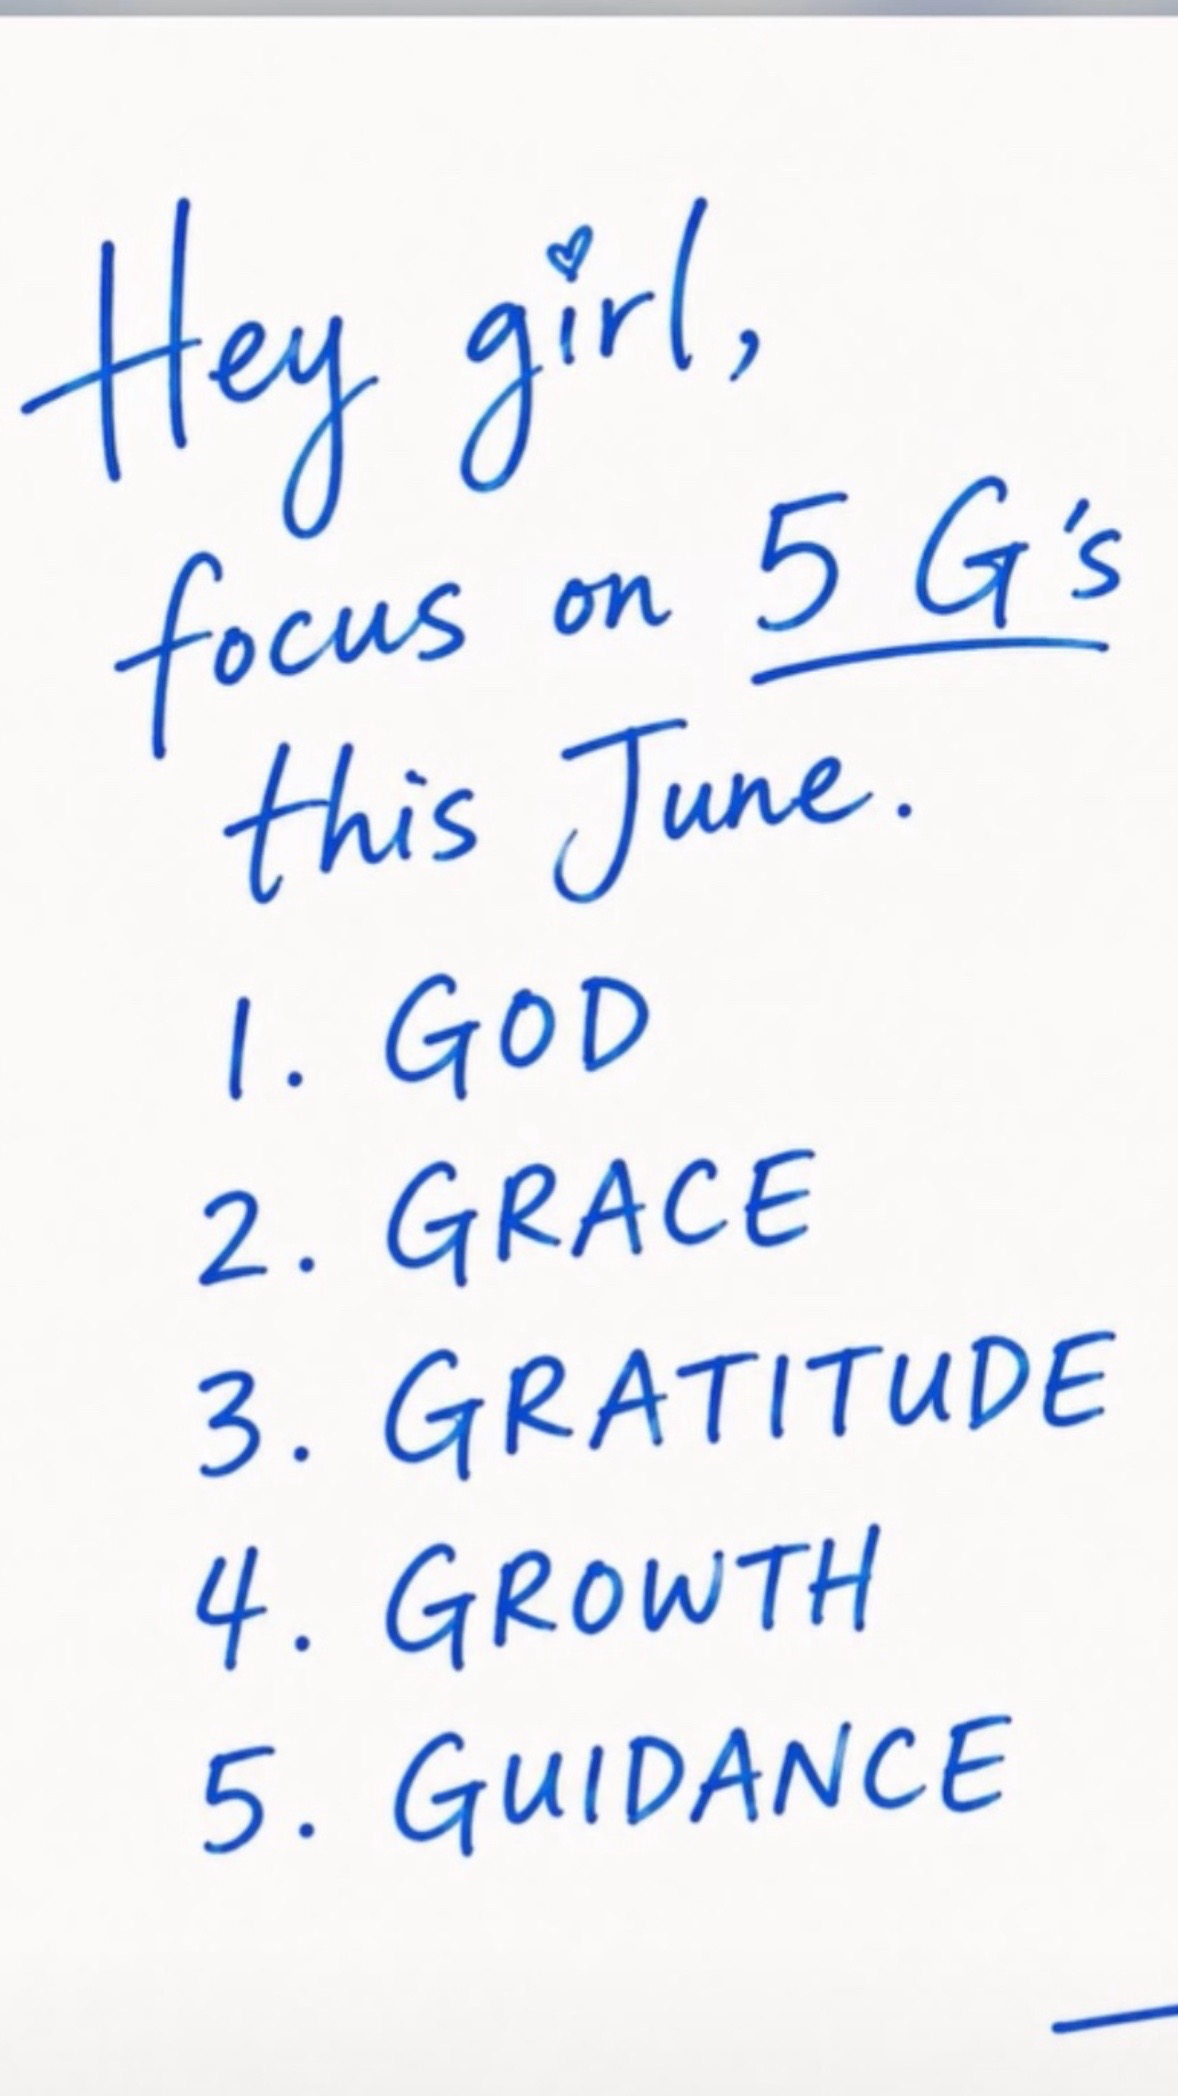 Hey girl,
focus on 5 G's
this June.
1. GOD
2. GRACE
3. GRATITUDE
4. GROWTH
5. GUIDANCE